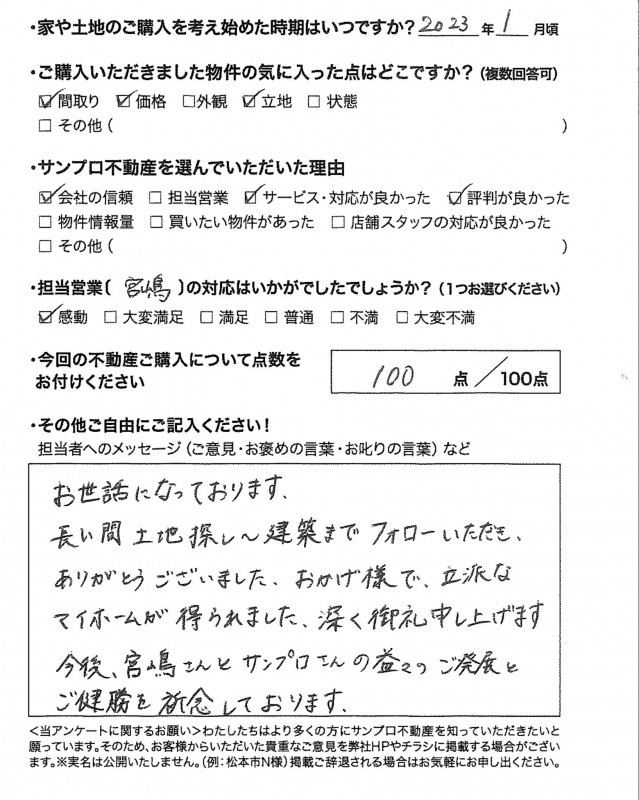 ・家や土地のご購入を考え始めた時期はいつですか? 2023 年 1 月頃
・ご購入いただきました物件の気に入った点はどこですか?(複数回答可)
☑ 間取り ☑ 価格 □ 外観 ☑ 立地 □ 状態
□ その他 ( )
・サンプロ不動産を選んでいただいた理由
☑ 会社の信頼 □ 担当営業 ☑ サービス・対応が良かった ☑ 評判が良かった
□ 物件情報量 □ 買いたい物件があった □ 店舗スタッフの対応が良かった
□ その他 ( )
・担当営業( 宮嶋 )の対応はいかがでしたでしょうか?(1つお選びください)
☑ 感動 □ 大変満足 □ 満足 □ 普通 □ 不満 □ 大変不満
・今回の不動産ご購入について点数を
お付けください
100 点/100点
・その他ご自由にご記入ください!
担当者へのメッセージ(ご意見・お褒めの言葉・お叱りの言葉)など
お世話になっております、
長い間 土地探し〜建築まで フォローいただき、
ありがとうございました、おかげ様で、立派な
マイホームが得られました、深く御礼申し上げます
今後、宮嶋さんとサンプロさんの益々のご発展と
ご健勝を祈念しております、
<当アンケートに関するお願い>わたしたちはより多くの方にサンプロ不動産を知っていただきたいと
願っています。そのため、お客様からいただいた貴重なご意見を弊社HPやチラシに掲載する場合がござい
ます。※実名は公開いたしません。(例:松本市N様)掲載ご辞退される場合はお気軽にお申し出ください。